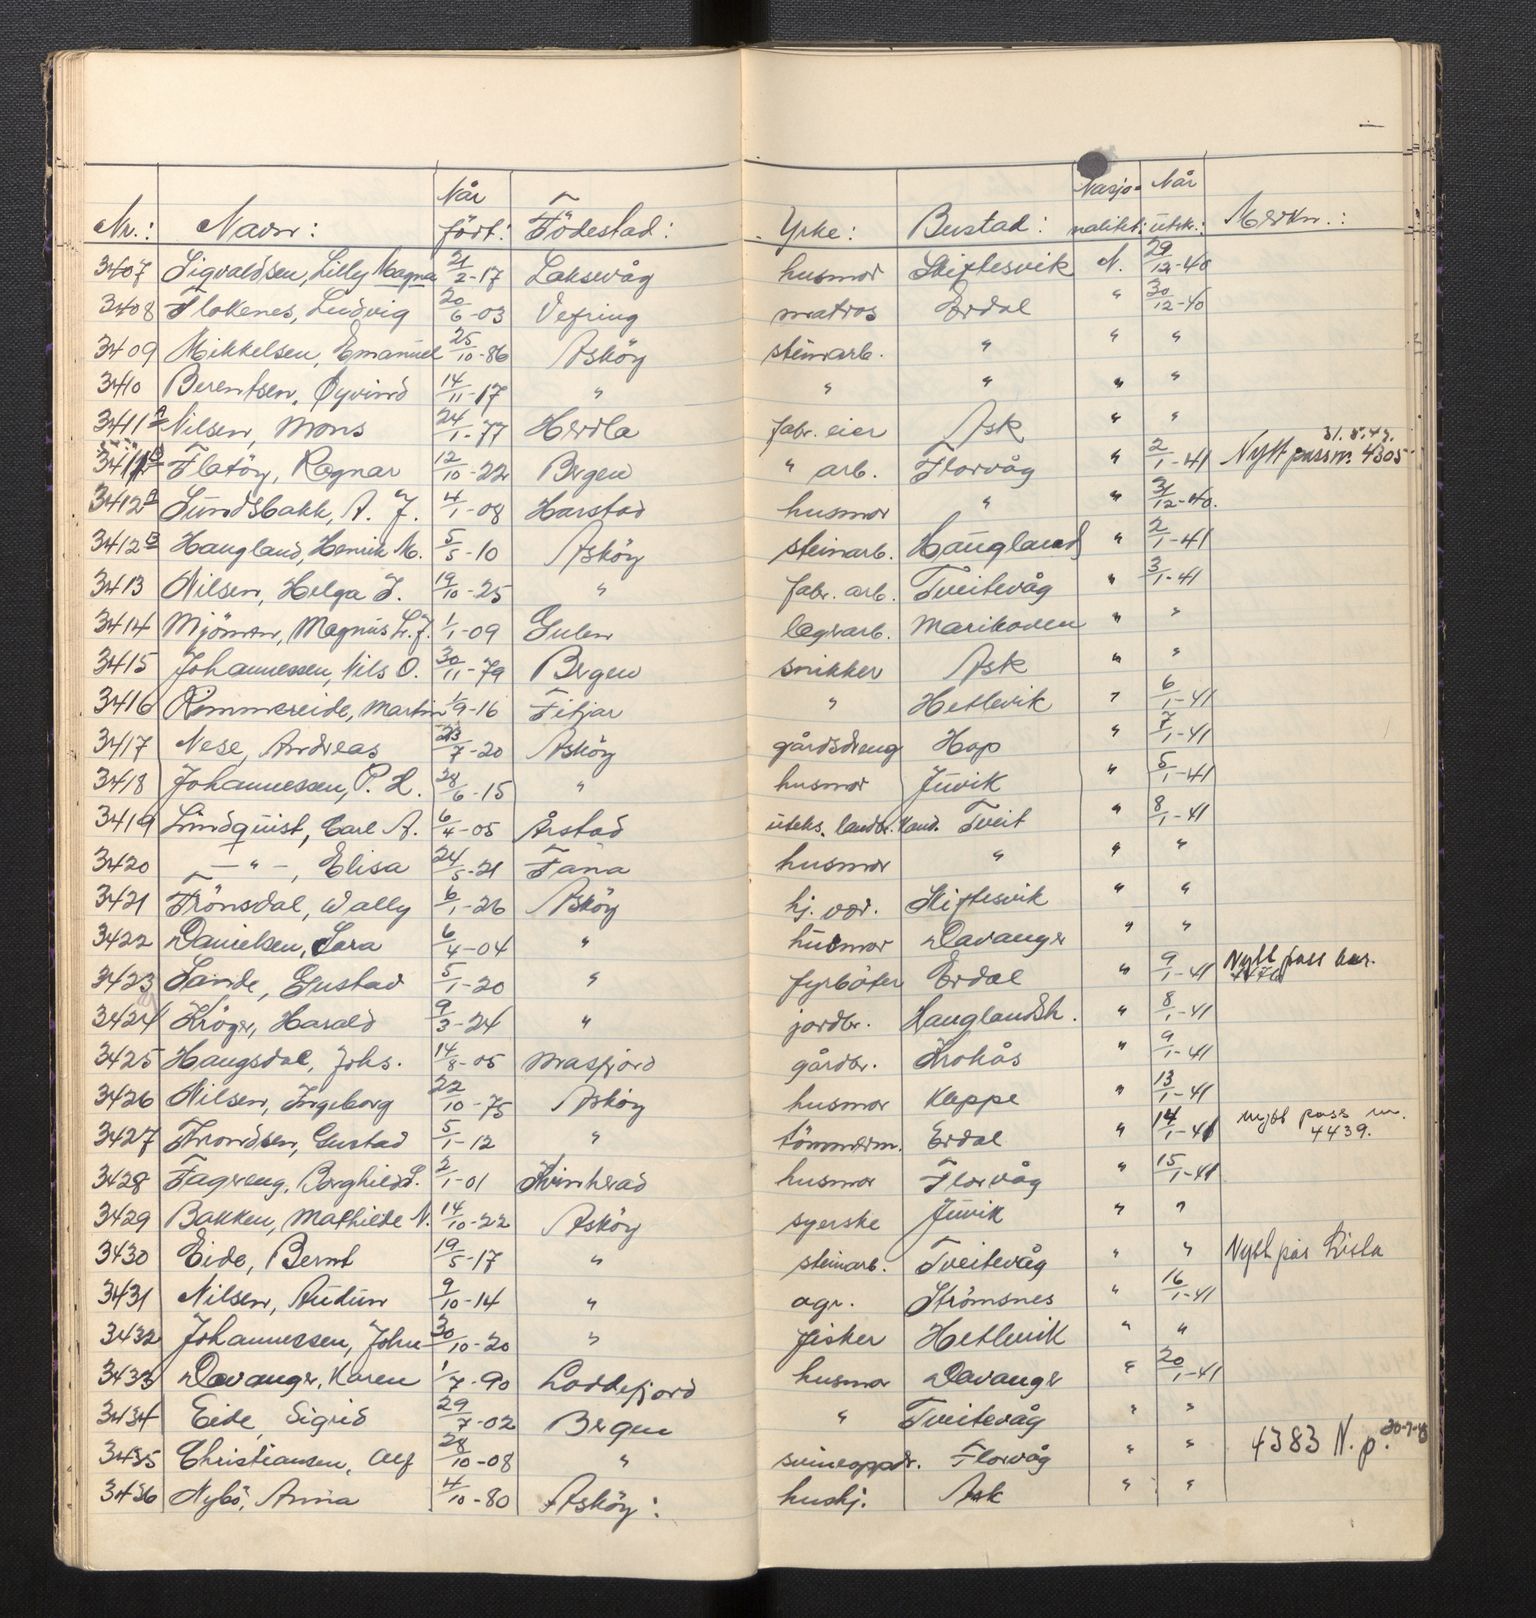 Nr.: Navn: Når født: Födestad: Yrke: Bustad: Nasjonalitet: Når utsk.: Merkn.:
3407 Sigvaldsen, Lilly Magna 21/2-17 Laksevåg husmor Skiftesvik N. 29/12-40
3408 Flokenes, Ludvig 20/6-03 Vefring matros Erdal " 30/12-40
3409 Mikkelsen, Emanuel 25/10-86 Asköy steinarb. " " "
3410 Berentsen, Øyvind 14/11-17 " " " " "
3411A Nilsen, Mons 24/1-77 Herdla fabr. eier Ask " "
3411B Flatöy, Ragnar 12/10-22 Bergen " arb. Florvåg " 2/1-41 Nytt pass nr. 4305
3412A Sundsbakk, A. J. 4/1-08 Harstad husmor " " 31/12-40.
3412B Haugland, Henrik M. 5/5-10 Asköy steinarb. Haugland " 2/1-41
3413 Nilsen, Helga J. 19/10-25 " fabr. arb. Tveitevåg " 3/1-41
3414 Mjömen, Magnus L. J. 1/1-09 Gulen lagerarb. Marikoven " "
3415 Johannessen, Nils O. 30/11-79 Bergen snikker Ask " "
3416 Rimmereide, Martin 1/9-16 Fitjar " Hetlevik " 6/1-41
3417 Nese, Andreas 23/7-20 Asköy gårdsdreng Hop " 7/1-41
3418 Johannessen, P. H. 28/6-15 " husmor Juvik " 5/1-41
3419 Lindquist, Carl A. 6/4-05 Årstad uteks. landbr. kand. Tveit " 8/1-41
3420 — " —, Elisa 24/5-21 Fana husmor " " "
3421 Frönsdal, Wally 6/1-26 Asköy hj. vær. Skiftesvik " "
3422 Danielsen, Lara 6/4-04 " husmor Davanger " "
3423 Sande, Gustav 5/1-20 " fyrböter Erdal " 9/1-41 Nytt pass nr.
3424 Kröger, Harald 9/3-24 " jordbr. Hauglandsh. " 8/1-41
3425 Haugsdal, Johs. 14/8-05 Masfjord gårdbr. Krokås " 9/1-41
3426 Nilsen, Ingeborg 22/10-75 Asköy husmor Kleppe " 13/1-41
3427 Trondsen, Gustav 5/1-12 " tömmerm. Erdal " 14/1-41 nytt pass nr. 4439.
3428 Fagereng, Borghild L. 2/1-01 Kvinherad husmor Florvåg " 15/1-41
3429 Bakken, Mathilde N. 14/10-22 Asköy syerske Juvik " "
3430 Eide, Bernt 19/5-17 " steinarb. Tveitevåg " " Nytt pas
3431 Nilsen, Audun 9/10-14 " agr. Strömsnes " 16/1-41
3432 Johannessen, John 30/10-20 " fisker Hetlevik " "
3433 Davanger, Karen 1/7-90 Loddefjord husmor Davanger " 20/1-41
3434 Eide, Sigrid 29/7-02 Bergen " Tveitevåg " "
3435 Christiansen, Alf 28/10-08 " svineoppdr. Florvåg " " 4383 N. p.
3436 Nybö, Anna 4/10-80 Asköy: hushj. Ask " "